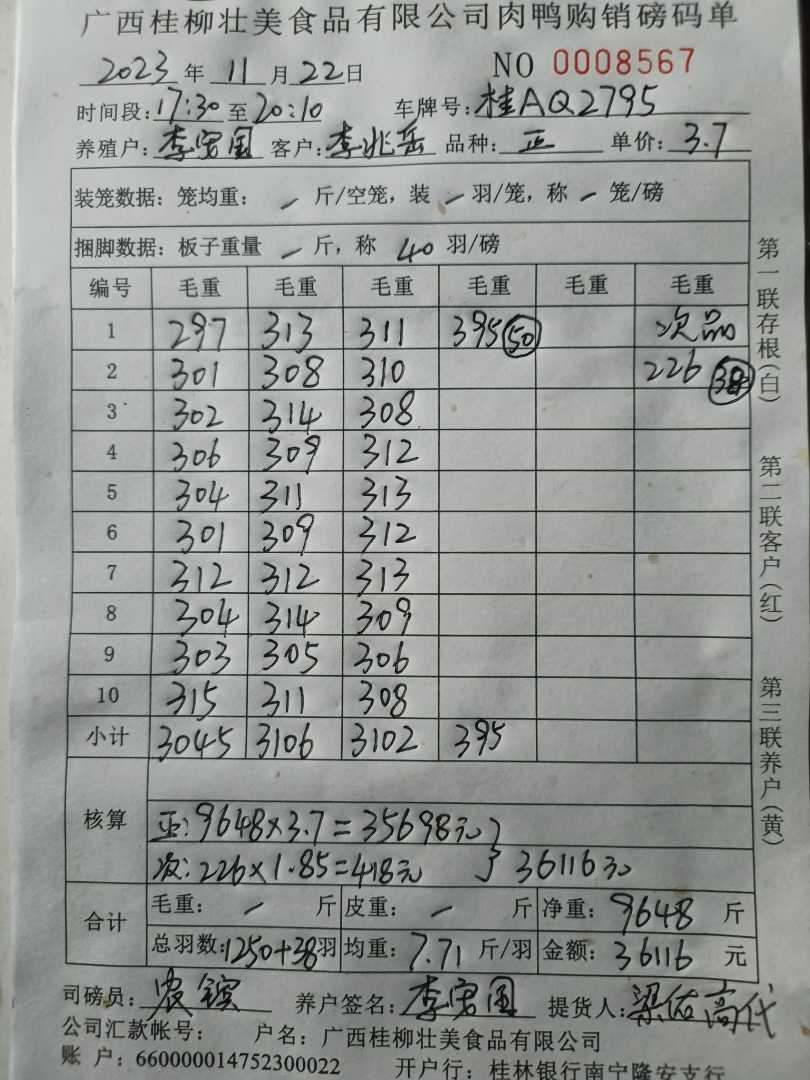 广西桂柳壮美食品有限公司肉鸭购销磅码单
2023 年 11 月 22 日 NO 0008567
时间段: 17:30 至 20:10 车牌号: 桂AQ2795
养殖户: 李 国 客户: 李兆岳 品种: 正 单价: 3.7
装笼数据: 笼均重: - 斤/空笼, 装 - 羽/笼, 称 - 笼/磅
捆脚数据: 板子重量 - 斤, 称 40 羽/磅
编号 毛重 毛重 毛重 毛重 毛重 毛重
1 297 313 311 395 50 次品
2 301 308 310 226 38
3 302 314 308
4 306 309 312
5 304 311 313
6 301 309 312
7 312 312 313
8 304 314 309
9 303 305 306
10 315 311 308
小计 3045 3106 3102 395
核算
正: 9648×3.7=35698元
次: 226×1.85=418元 } 36116元
合计 毛重: - 斤 皮重: - 斤 净重: 9648 斤
总羽数: 1250+38 羽 均重: 7.71 斤/羽 金额: 36116 元
司磅员: 农 养户签名: 李 国 提货人: 梁佑高代
公司汇款帐号: 户名: 广西桂柳壮美食品有限公司
账 户: 660000014752300022 开户行: 桂林银行南宁隆安支行
第一联存根(白)
第二联客户(红)
第三联养户(黄)